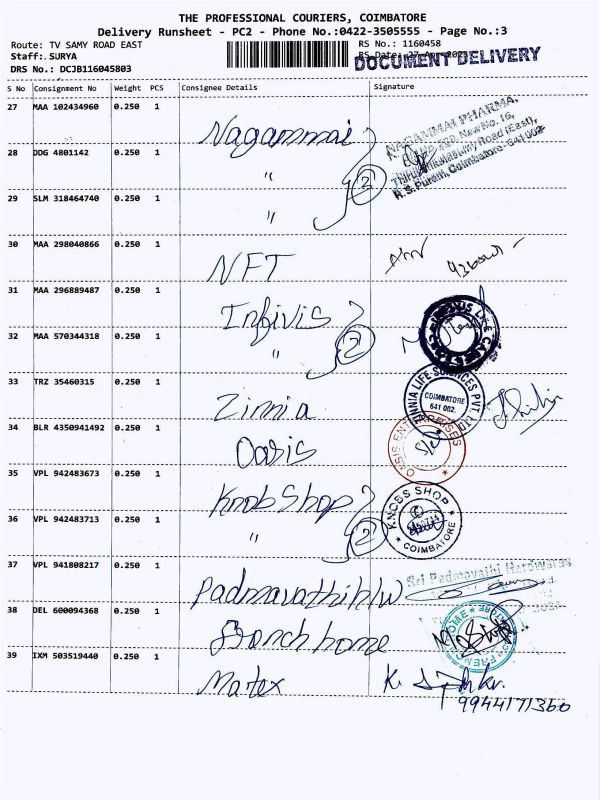 THE PROFESSIONAL COURIERS, COIMBATORE
Delivery Runsheet - PC2 - Phone No.:0422-3505555 - Page No.:3
Route: TV SAMY ROAD EAST
RS No.: 1160458
Staff: SURYA
RS Date: 27-Apr-202
DOCUMENT DELIVERY
DRS No.: DCJB116045803
S No Consignment No Weight PCS Consignee Details Signature
27 MAA 102434960 0.250 1 Nagammai
NAGAMMAI PHARMA,
New No. 16,
Road (East),
R. S. Puram, Coimbatore - 641 002
28 DDG 4801142 0.250 1 "
3
29 SLM 318464740 0.250 1 "
30 MAA 298040866 0.250 1 NFT
31 MAA 296889487 0.250 1 Infivis
32 MAA 570344318 0.250 1 "
2
33 TRZ 35460315 0.250 1 Zinnia
ZINNIA LIFE SCIENCES PVT. LTD.
COIMBATORE
641 002.
34 BLR 4350941492 0.250 1 Oasis
OASIS ENTERPRISES
35 VPL 942483673 0.250 1 Knob Shop
KNOBS SHOP
COIMBATORE
36 VPL 942483713 0.250 1 "
2
37 VPL 941808217 0.250 1 Padmavathi h/w
Sri Padmavathi Hardwares
38 DEL 600094368 0.250 1 French home
39 IXM 503519440 0.250 1 Matex
K.
9944171360